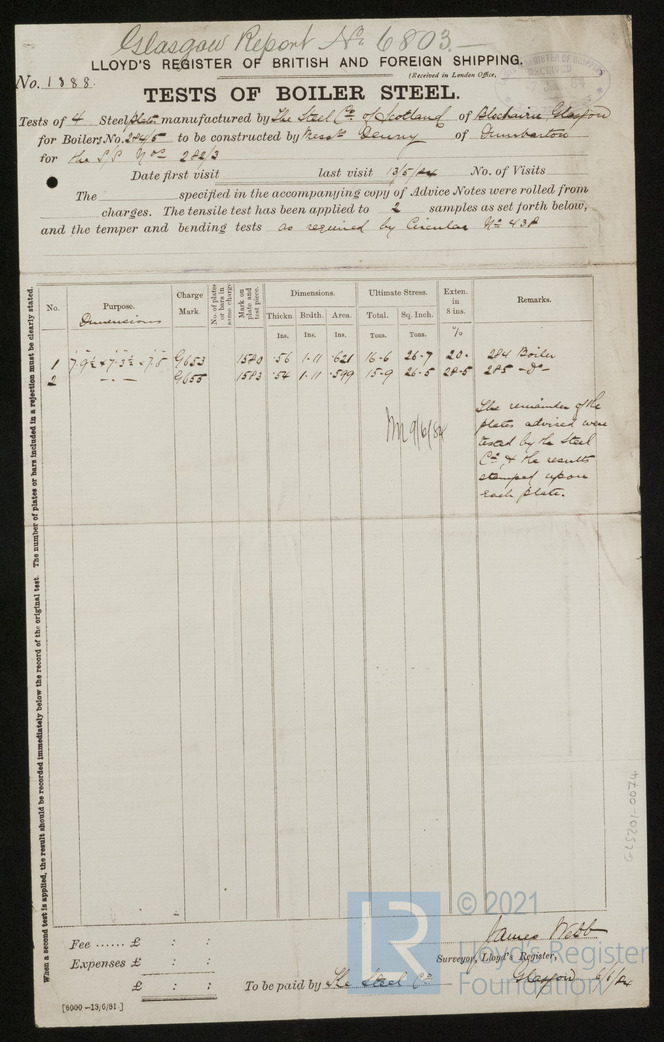 Glasgow Report No 6803.—
LLOYD'S REGISTER OF BRITISH AND FOREIGN SHIPPING.
No. 1888.
(Received in London Office,
TESTS OF BOILER STEEL.
Tests of 4 Steel Plates manufactured by The Steel Co of Scotland of Blochairn Glasgow
for Boilers No. 284/5 to be constructed by Messrs Denny of Dumbarton
for the S.S. Nos 282/3
Date first visit last visit 13/5/84 No. of Visits
The specified in the accompanying copy of Advice Notes were rolled from
charges. The tensile test has been applied to 2 samples as set forth below,
and the temper and bending tests as required by Circular No 438
No. Purpose. Charge Mark. No. of plates or bars in same charge Mark on plate and test piece. Dimensions. Ultimate Stress. Exten. in 8 ins. Remarks.
Dimensions Thickn. Brdth. Area. Total. Sq. Inch.
Ins. Ins. Ins. Tons. Tons. %
1 7.9½ × 7.3½ × 7.8 G653 1580 .56 1.11 .621 16.6 26.7 20. 284 Boiler
2 — . — G655 1583 .54 1.11 .599 15.9 26.5 28.5 285 — Do —
The remainder of the
plates advised were
tested by the Steel
Co & the results
stamped upon
each plate.
9/6/84
When a second test is applied, the result should be recorded immediately below the record of the original test. The number of plates or bars included in a rejection must be clearly stated.
GLS201-0074
Fee ...... £ : :
Expenses £ : :
£ : :
James Webb
Surveyor, Lloyd's Register,
To be paid by The Steel Co
Glasgow 6/6/84
[6000—13/6/81.]
LR © 2021
Lloyd's Register
Foundation